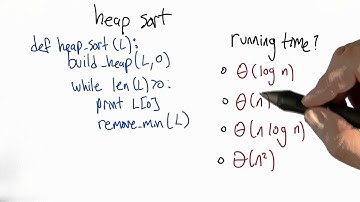 heap sort
def heap_sort(L):
build_heap(L,0)
while len(L)>0:
print L[0]
remove_min(L)
running time?
Θ(log n)
Θ(n)
Θ(n log n)
Θ(n²)